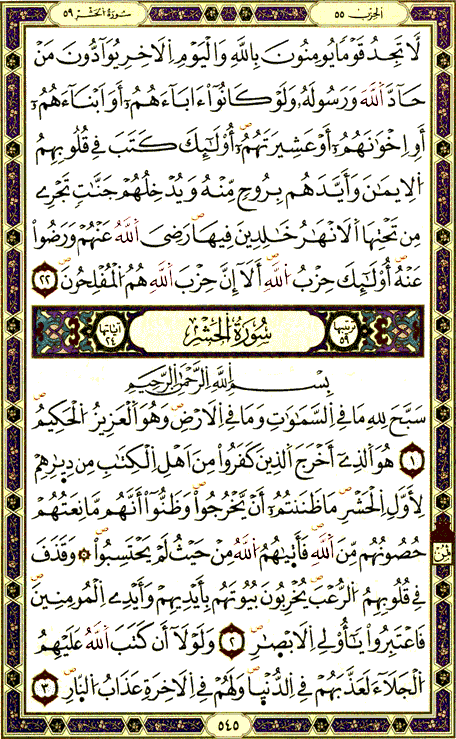 الحزب ٥٥
سورة الحشر ٥٩
لَّا تَجِدُ قَوْمًا يُومِنُونَ بِاللَّهِ وَالْيَوْمِ اِلَاخِرِ يُوَآدُّونَ مَنْ
حَآدَّ اَللَّهَ وَرَسُولَهُۥ وَلَوْ كَانُوٓاْ ءَابَآءَهُمُۥٓ أَوَ اَبْنَآءَهُمُۥٓ
أَوِ اِخْوَٰنَهُمُۥٓ أَوْ عَشِيرَتَهُمُۥٓ أُوْلَٰٓئِكَ كَتَبَ فِے قُلُوبِهِمُ
اُلِايمَٰنَ وَأَيَّدَهُم بِرُوحٍ مِّنْهُ وَيُدْخِلُهُمْ جَنَّٰتٍ تَجْرِے
مِن تَحْتِهَا اَلَانْهَٰرُ خَٰلِدِينَ فِيهَا رَضِىَ اَللَّهُ عَنْهُمْ وَرَضُواْ
عَنْهُ أُوْلَٰٓئِكَ حِزْبُ اُللَّهِ أَلَآ إِنَّ حِزْبَ اَللَّهِ هُمُ اُلْمُفْلِحُونَ ٢٢
ترتيبها ٥٩ سُورَةُ الْحَشْرِ آياتها ٢٤
بِسْمِ اِللَّهِ اِلرَّحْمَٰنِ اِلرَّحِيمِ
سَبَّحَ لِلهِ مَا فِے اِلسَّمَٰوَٰتِ وَمَا فِے اِلَارْضِ وَهُوَ اَلْعَزِيزُ اُلْحَكِيمُ
١ هُوَ اَلذِےٓ أَخْرَجَ اَلذِينَ كَفَرُواْ مِنَ اَهْلِ اِلْكِتَٰبِ مِن دِيٰ۪رِهِمْ
لِأَوَّلِ اِلْحَشْرِ مَا ظَنَنتُمُۥٓ أَنْ يَّخْرُجُواْ وَظَنُّوٓاْ أَنَّهُم مَّانِعَتُهُمْ
حُصُونُهُم مِّنَ اَللَّهِ فَأَتَىٰهُمُ اُللَّهُ مِنْ حَيْثُ لَمْ يَحْتَسِبُواْ ۞ وَقَذَفَ
فِے قُلُوبِهِمُ اُلرُّعْبَ يُخْرِبُونَ بُيُوتَهُم بِأَيْدِيهِمْ وَأَيْدِے اِلْمُومِنِينَ
فَاعْتَبِرُواْ يَٰٓأُوْلِے اِلَابْصٰ۪رِ ٢ وَلَوْلَآ أَن كَتَبَ اَللَّهُ عَلَيْهِمُ
اُلْجَلَآءَ لَعَذَّبَهُمْ فِے اِلدُّنْيَا وَلَهُمْ فِے اِلَاخِرَةِ عَذَابُ اُلنَّارِ ٣
ثمن
٥٤٥